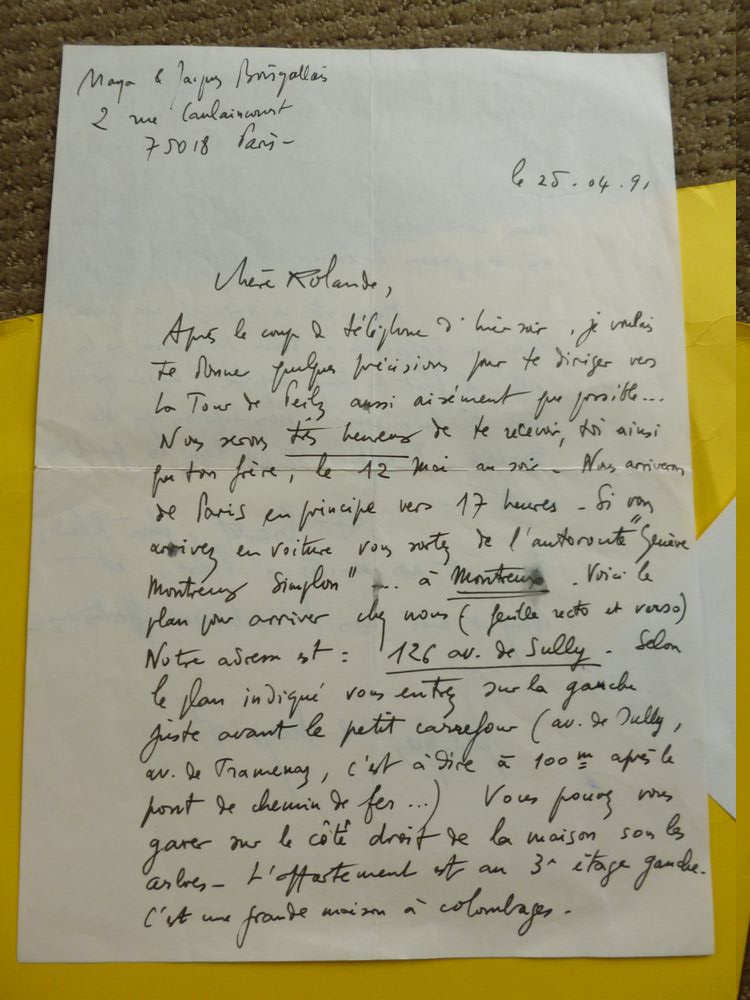 Maya & Jacques Boisgallais
2 rue Caulaincourt
75018 Paris -
le 25.04.91
Chère Rolande,
Après le coup de téléphone d'hier soir, je voulais
te donner quelques précisions pour te diriger vers
la Tour de Peilz aussi aisément que possible...
Nous serons très heureux de te recevoir, toi ainsi
que ton frère, le 12 Mai au soir - Nous arriverons
de Paris en principe vers 17 heures - Si vous
arrivez en voiture vous sortez de l'autoroute "Genève
Montreux Simplon" ... à Montreux. Voici le
plan pour arriver chez nous (feuille recto et verso)
Notre adresse est : 126 av. de Sully. Selon
le plan indiqué vous entrez sur la gauche
juste avant le petit carrefour (av. de Sully,
av. de Tramenaz, c'est à dire à 100 m après le
pont de chemin de fer...) Vous pouvez vous
garer sur le côté droit de la maison sous les
arbres - L'appartement est au 3e étage gauche.
C'est une grande maison à colombages.